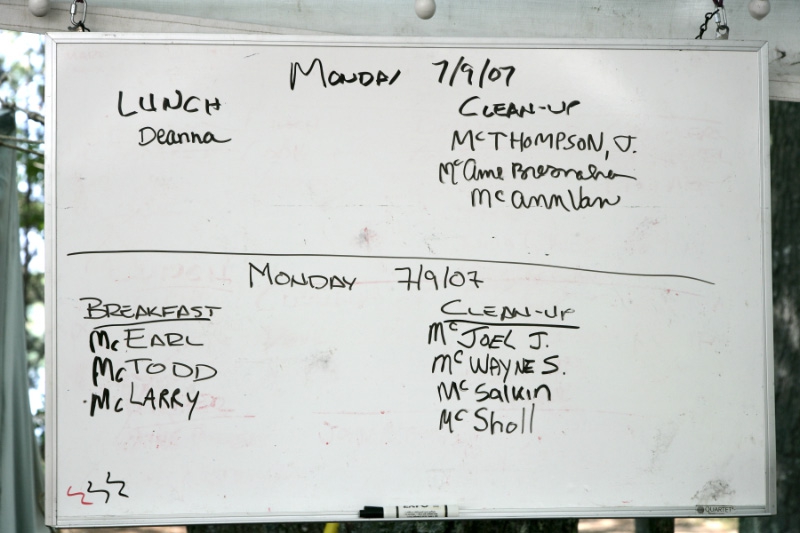 MONDAY 7/9/07
LUNCH
Deanna
CLEAN-UP
McTHOMPSON, J.
McAnne Bresnahan
McAnnVan
MONDAY 7/9/07
BREAKFAST
McEARL
McTODD
McLARRY
CLEAN-UP
McJOEL J.
McWAYNE S.
McSalkin
McSholl
EXPO
QUARTET